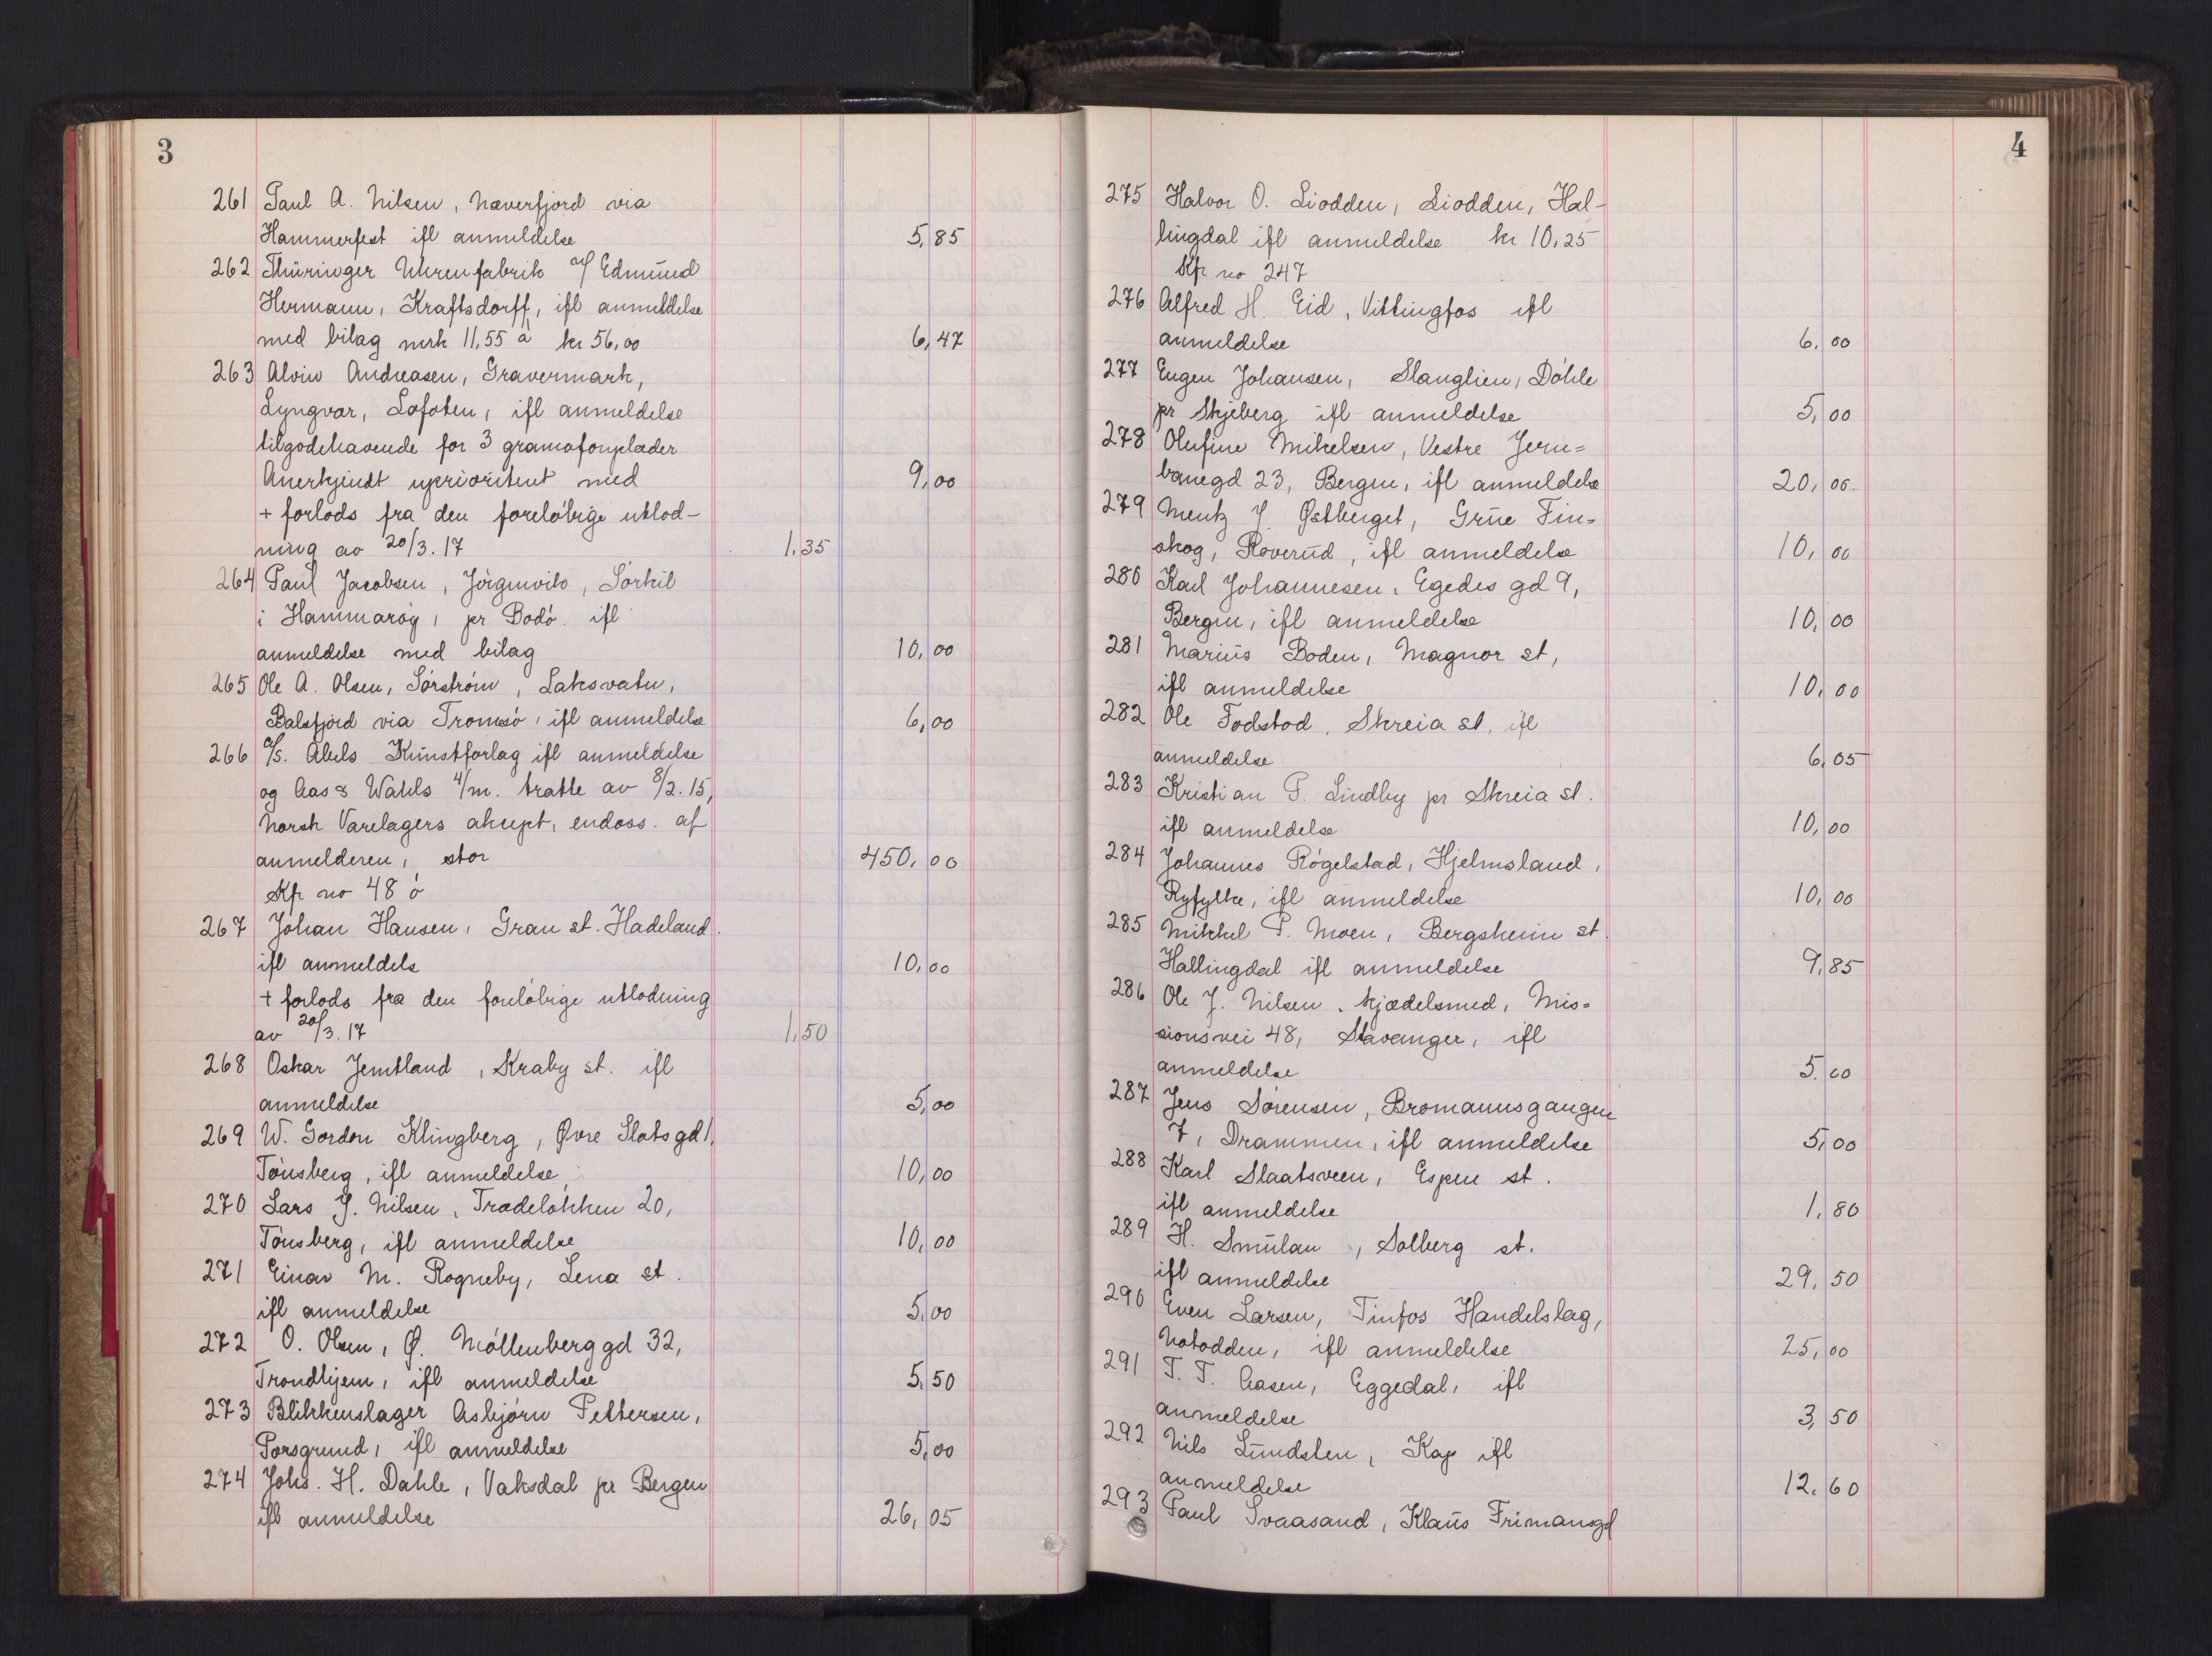 3
261 Paul A. Nilsen, Næverfjord via
Hammerfest ifl anmeldelse 5,85
262 Thüringer Uhrenfabrik v/ Edmund
Hermann, Kraftsdorff, ifl anmeldelse
med bilag mrk 11,55 à kr 56,00 6,47
263 Alvin Andreasen, Gravermark,
Lyngvær, Lofoten, ifl anmeldelse
tilgodehavende for 3 gramofonplader
Anerkjendt uprioritert med 9,00
+ forlods fra den foreløbige utlod-
ning av 20/3.17 1,35
264 Paul Jacobsen, Jörgenvik, Sörkil
i Hammaröy, pr Bodö. ifl
anmeldelse med bilag 10,00
265 Ole A. Olsen, Sörström, Laksvatn,
Balsfjord via Tromsö, ifl anmeldelse 6,00
266 A/S. Abels Kunstforlag ifl anmeldelse
og Aas & Wahls 4/m. tratte av 8/2.15,
Norsk Varelagers aksept, endoss. af
anmelderen, stor 450,00
Kfr no 48 ö
267 Johan Hansen, Gran st. Hadeland.
ifl anmeldels 10,00
+ forlods fra den foreløbige utlodning
av 20/3.17 1,50
268 Oskar Jemtland, Kraby st. ifl
anmeldelse 5,00
269 W. Gordon Klingberg, Øvre Slotsgd 1,
Tönsberg, ifl anmeldelse, 10,00
270 Lars J. Nilsen, Trædelökken 20,
Tönsberg, ifl anmeldelse 10,00
271 Einar M. Rogneby, Lena st.
ifl anmeldelse 5,00
272 O. Olsen, Ø. Möllenberggd 32,
Trondhjem, ifl anmeldelse 5,50
273 Blikkenslager Asbjörn Pettersen,
Porsgrund, ifl anmeldelse 5,00
274 Johs. H. Dahle, Vaksdal pr Bergen
ifl anmeldelse 26,05
4
275 Halvor O. Liodden, Liodden, Hal-
lingdal ifl anmeldelse kr 10,25
Kfr no 247
276 Alfred H. Eid, Vittingfos ifl
anmeldelse 6,00
277 Eugen Johansen, Slanglien, Döhle
pr Skjeberg ifl anmeldelse 5,00
278 Olufine Mikelsen, Vestre Jern=
banegd 23, Bergen, ifl anmeldelse 20,00
279 Mentz J. Østberget, Grue Fin=
skog, Roverud, ifl anmeldelse 10,00
280 Karl Johannesen, Egedes gd 9,
Bergen, ifl anmeldelse 10,00
281 Marius Boden, Magnor st,
ifl anmeldelse 10,00
282 Ole Fodstad, Skreia st. ifl
anmeldelse 6,05
283 Kristian P. Lindby pr Skreia st.
ifl anmeldelse 10,00
284 Johannes Rögelstad, Hjelmsland,
Ryfylke, ifl anmeldelse 10,00
285 Mikkel P. Moen, Bergsheim st.
Hallingdal ifl anmeldelse 9,85
286 Ole J. Nilsen, kjædelsmed, Mis=
sionsvei 48, Stavanger, ifl
anmeldelse 5,00
287 Jens Sörensen, Bromannsgangen
7, Drammen, ifl anmeldelse 5,00
288 Karl Slaatsveen, Espen st.
ifl anmeldelse 1,80
289 H. Smulan, Solberg st.
ifl anmeldelse 29,50
290 Even Larsen, Tinfos Handelslag,
Notodden, ifl anmeldelse 25,00
291 T. T. Aasen, Eggedal, ifl
anmeldelse 3,50
292 Nils Lundsten, Kap ifl
anmeldelse 12,60
293 Paul Svaasand, Klaus Frimansgd